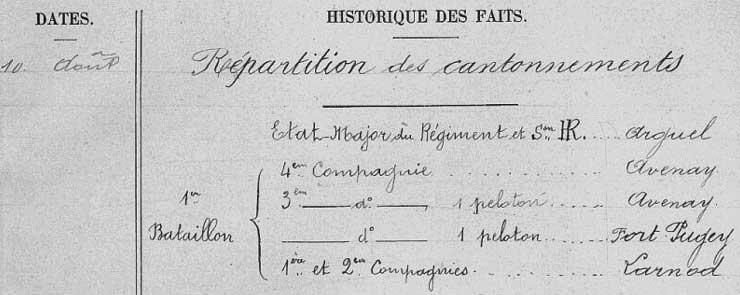 DATES.
HISTORIQUE DES FAITS.
10. Août
Répartition des cantonnements
Etat-Major du Régiment et Son HR.... Arguel
4em Compagnie .......... Avenay
3em ___ do ___, 1 peloton ...... Avenay
1er Bataillon
___ do ___ 1 peloton..... Fort Pugey
1ère et 2em Compagnies.......... Larnod